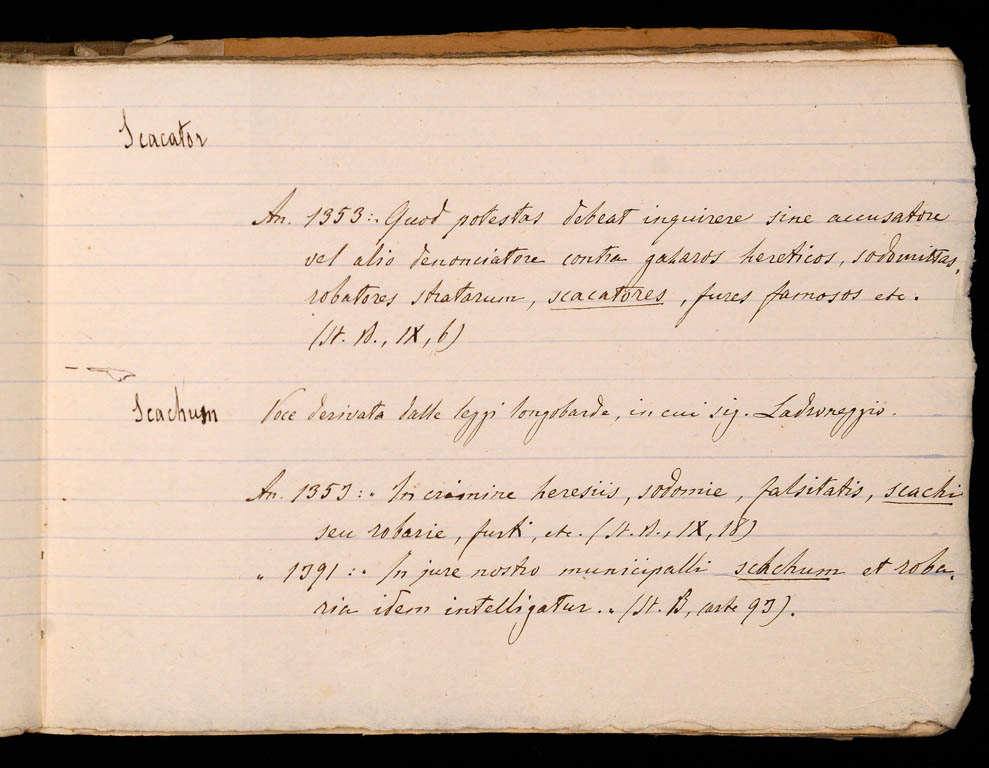 Scacator
An. 1353: „ Quod potestas debeat inquirere sine accusatore
vel alio denonciatore contra gazaros hereticos, sodomittas,
robatores stratarum, scacatores, fures famosos etc.
(St. B., IX, 6)
Scachum Voce derivata dalle leggi longobarde, in cui sig. Ladroneggio.
An. 1353: „ In crimine heresiis, sodomie, falsitatis, scachi
seu robarie, furti, etc. (St. B., IX, 18)
„ 1391: „ In jure nostro municipalli scachum et roba-
ria idem intelligatur. „ (St. B, carte 93).